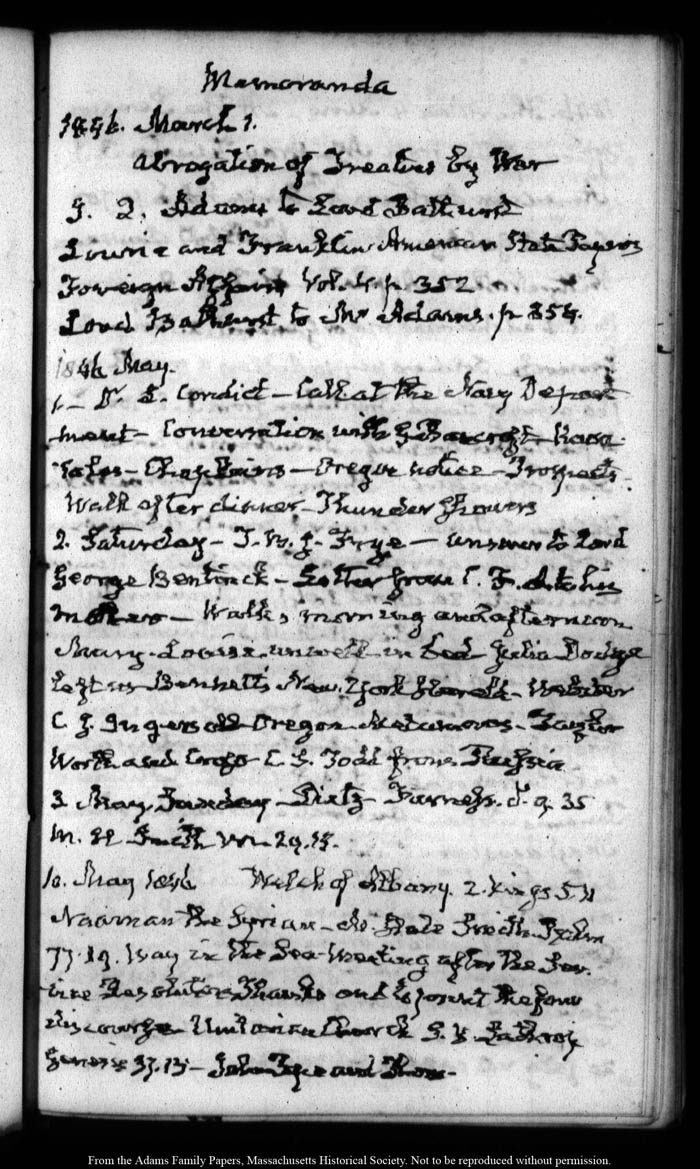 Memoranda
1846. March 1.
Abrogation of Treaties by War
J. Q. Adams to Lord Bathurst
Lowrie and Franklin American State Papers
Foreign Affairs Vol. 4. p. 352
Lord Bathurst to Mr Adams. p 354.
1846 May.
1.— Dr. L. Condict — Call at the Navy Depart
ment — Conversation with G Bancroft
— Chaplains — Oregon notice — Prospects
Walk after dinner — Thunder Showers
2. Saturday — T. W. J. Frye — answer to Lord
George Bentinck — Letter from C. F.
— Walks, morning and afternoon
Mary Louisa unwell in bed Julia Dodge
left us Bennett's New-York Herald — Webster
C. J. Ingersoll Oregon Matamoras — Taylor
Worth and C. S. Todd from Russia
3 May Sunday — Furness.
M. H. Smith
10. May 1846 Welch of Albany. 2. Kings 5. 11
Naaman the Syrian — Psalm
77. 19. Way in the Sea — Meeting after the Ser
vice Thanks and to print the
discourse Unitarian Church
Genesis 37. 15 —